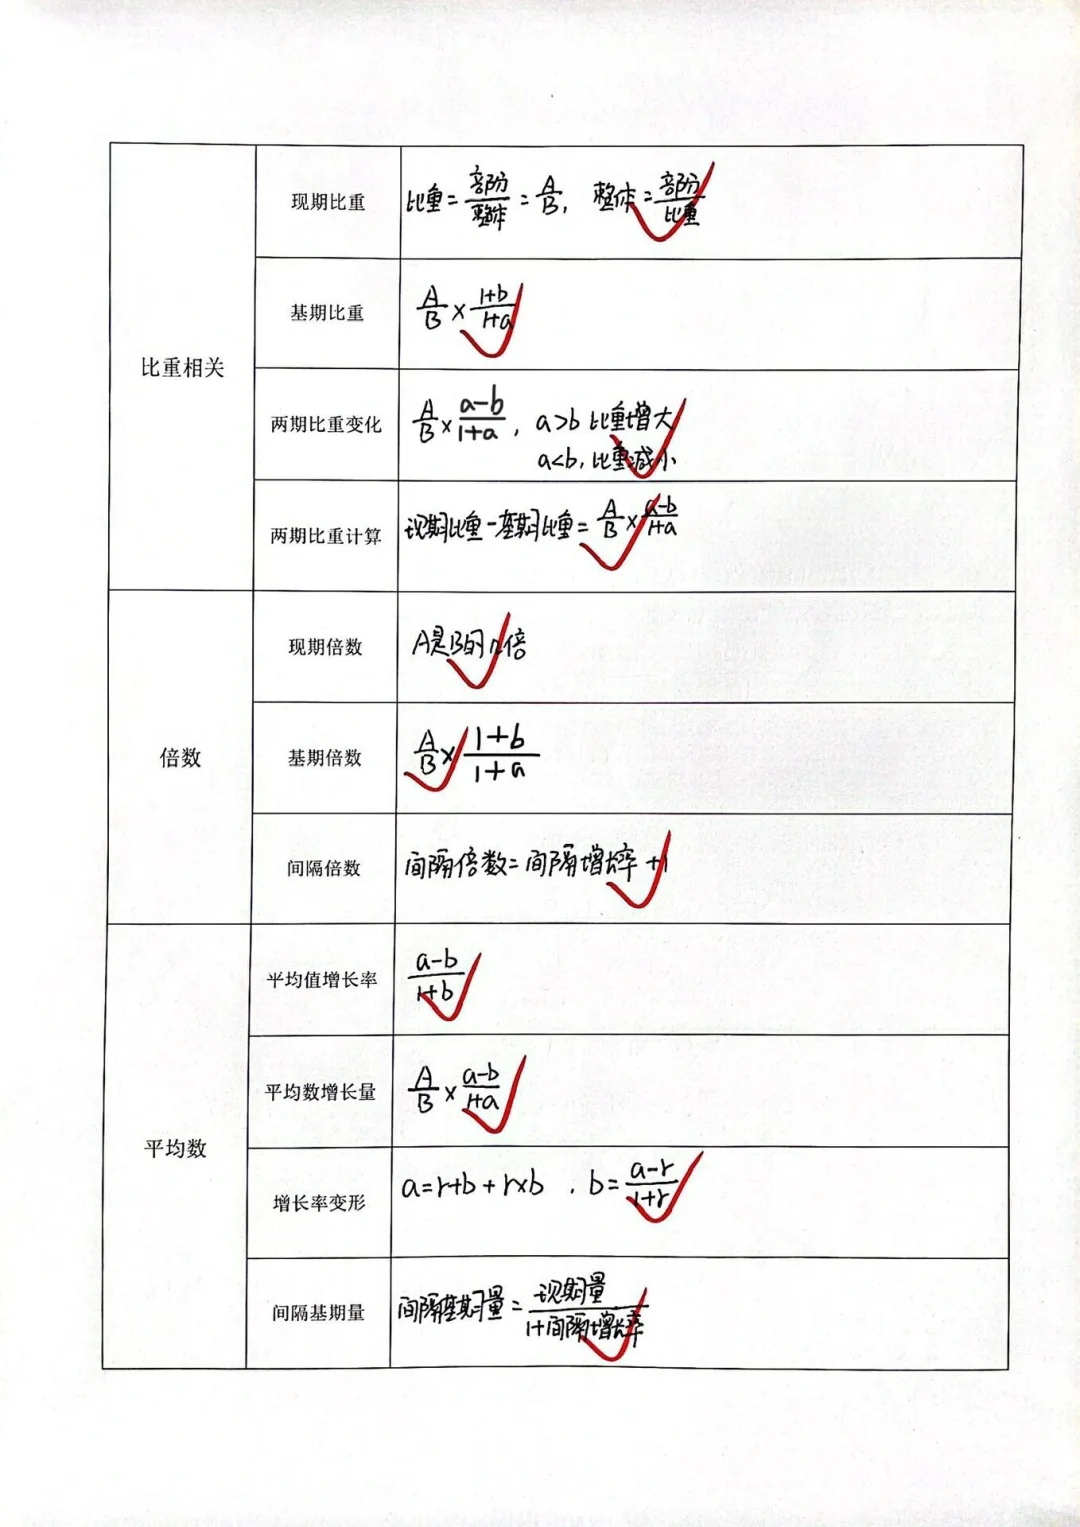 比重相关
现期比重
比重=部份/整体=A/B, 整体=部份/比重
基期比重
A/B×(1+b)/(1+a)
两期比重变化
A/B×(a-b)/(1+a), a>b 比重增大
a<b, 比重减小
两期比重计算
现期比重-基期比重=A/B×(a-b)/(1+a)
倍数
现期倍数
A是B的n倍
基期倍数
A/B×(1+b)/(1+a)
间隔倍数
间隔倍数=间隔增长率+1
平均数
平均值增长率
(a-b)/(1+b)
平均数增长量
A/B×(a-b)/(1+a)
增长率变形
a=r+b+r×b , b=(a-r)/(1+r)
间隔基期量
间隔基期量=现期量/(1+间隔增长率)